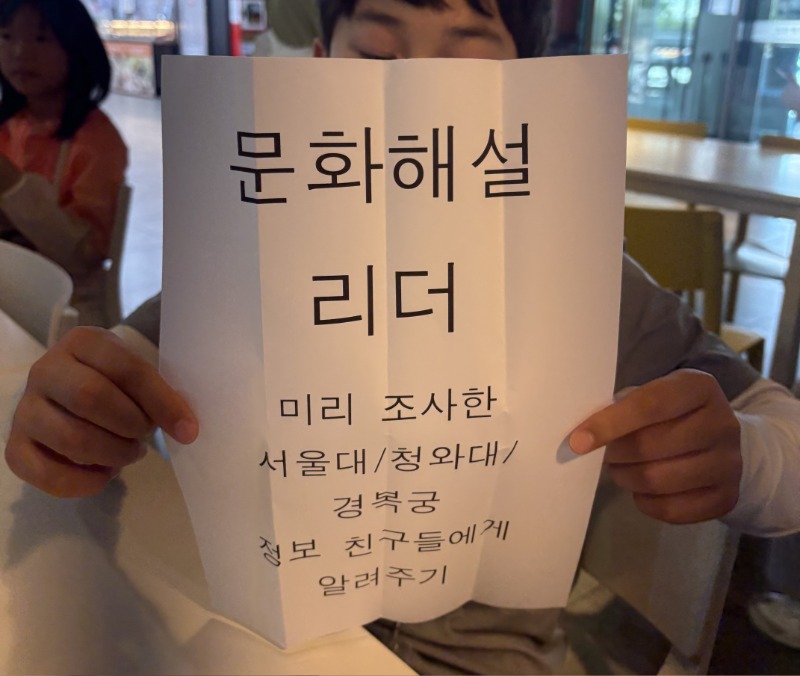 문화해설
리더
미리 조사한
서울대/청와대/
경복궁
정보 친구들에게
알려주기